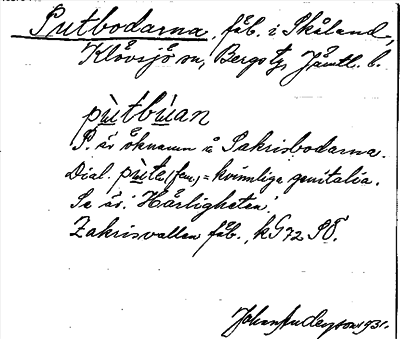 Putbodarna, fäb. i Skåland,
Klövsjö sn, Bergs tg, Jämtl. l.
pùtbùan
P. är öknamn å Sakrisbodarna.
Dial. pùte, (fem.) = kvinnliga genitalia.
Se äv. 'Härligheten'.
Zakrisvallen fäb., kG72 SO.
Johan Anderson 1931.